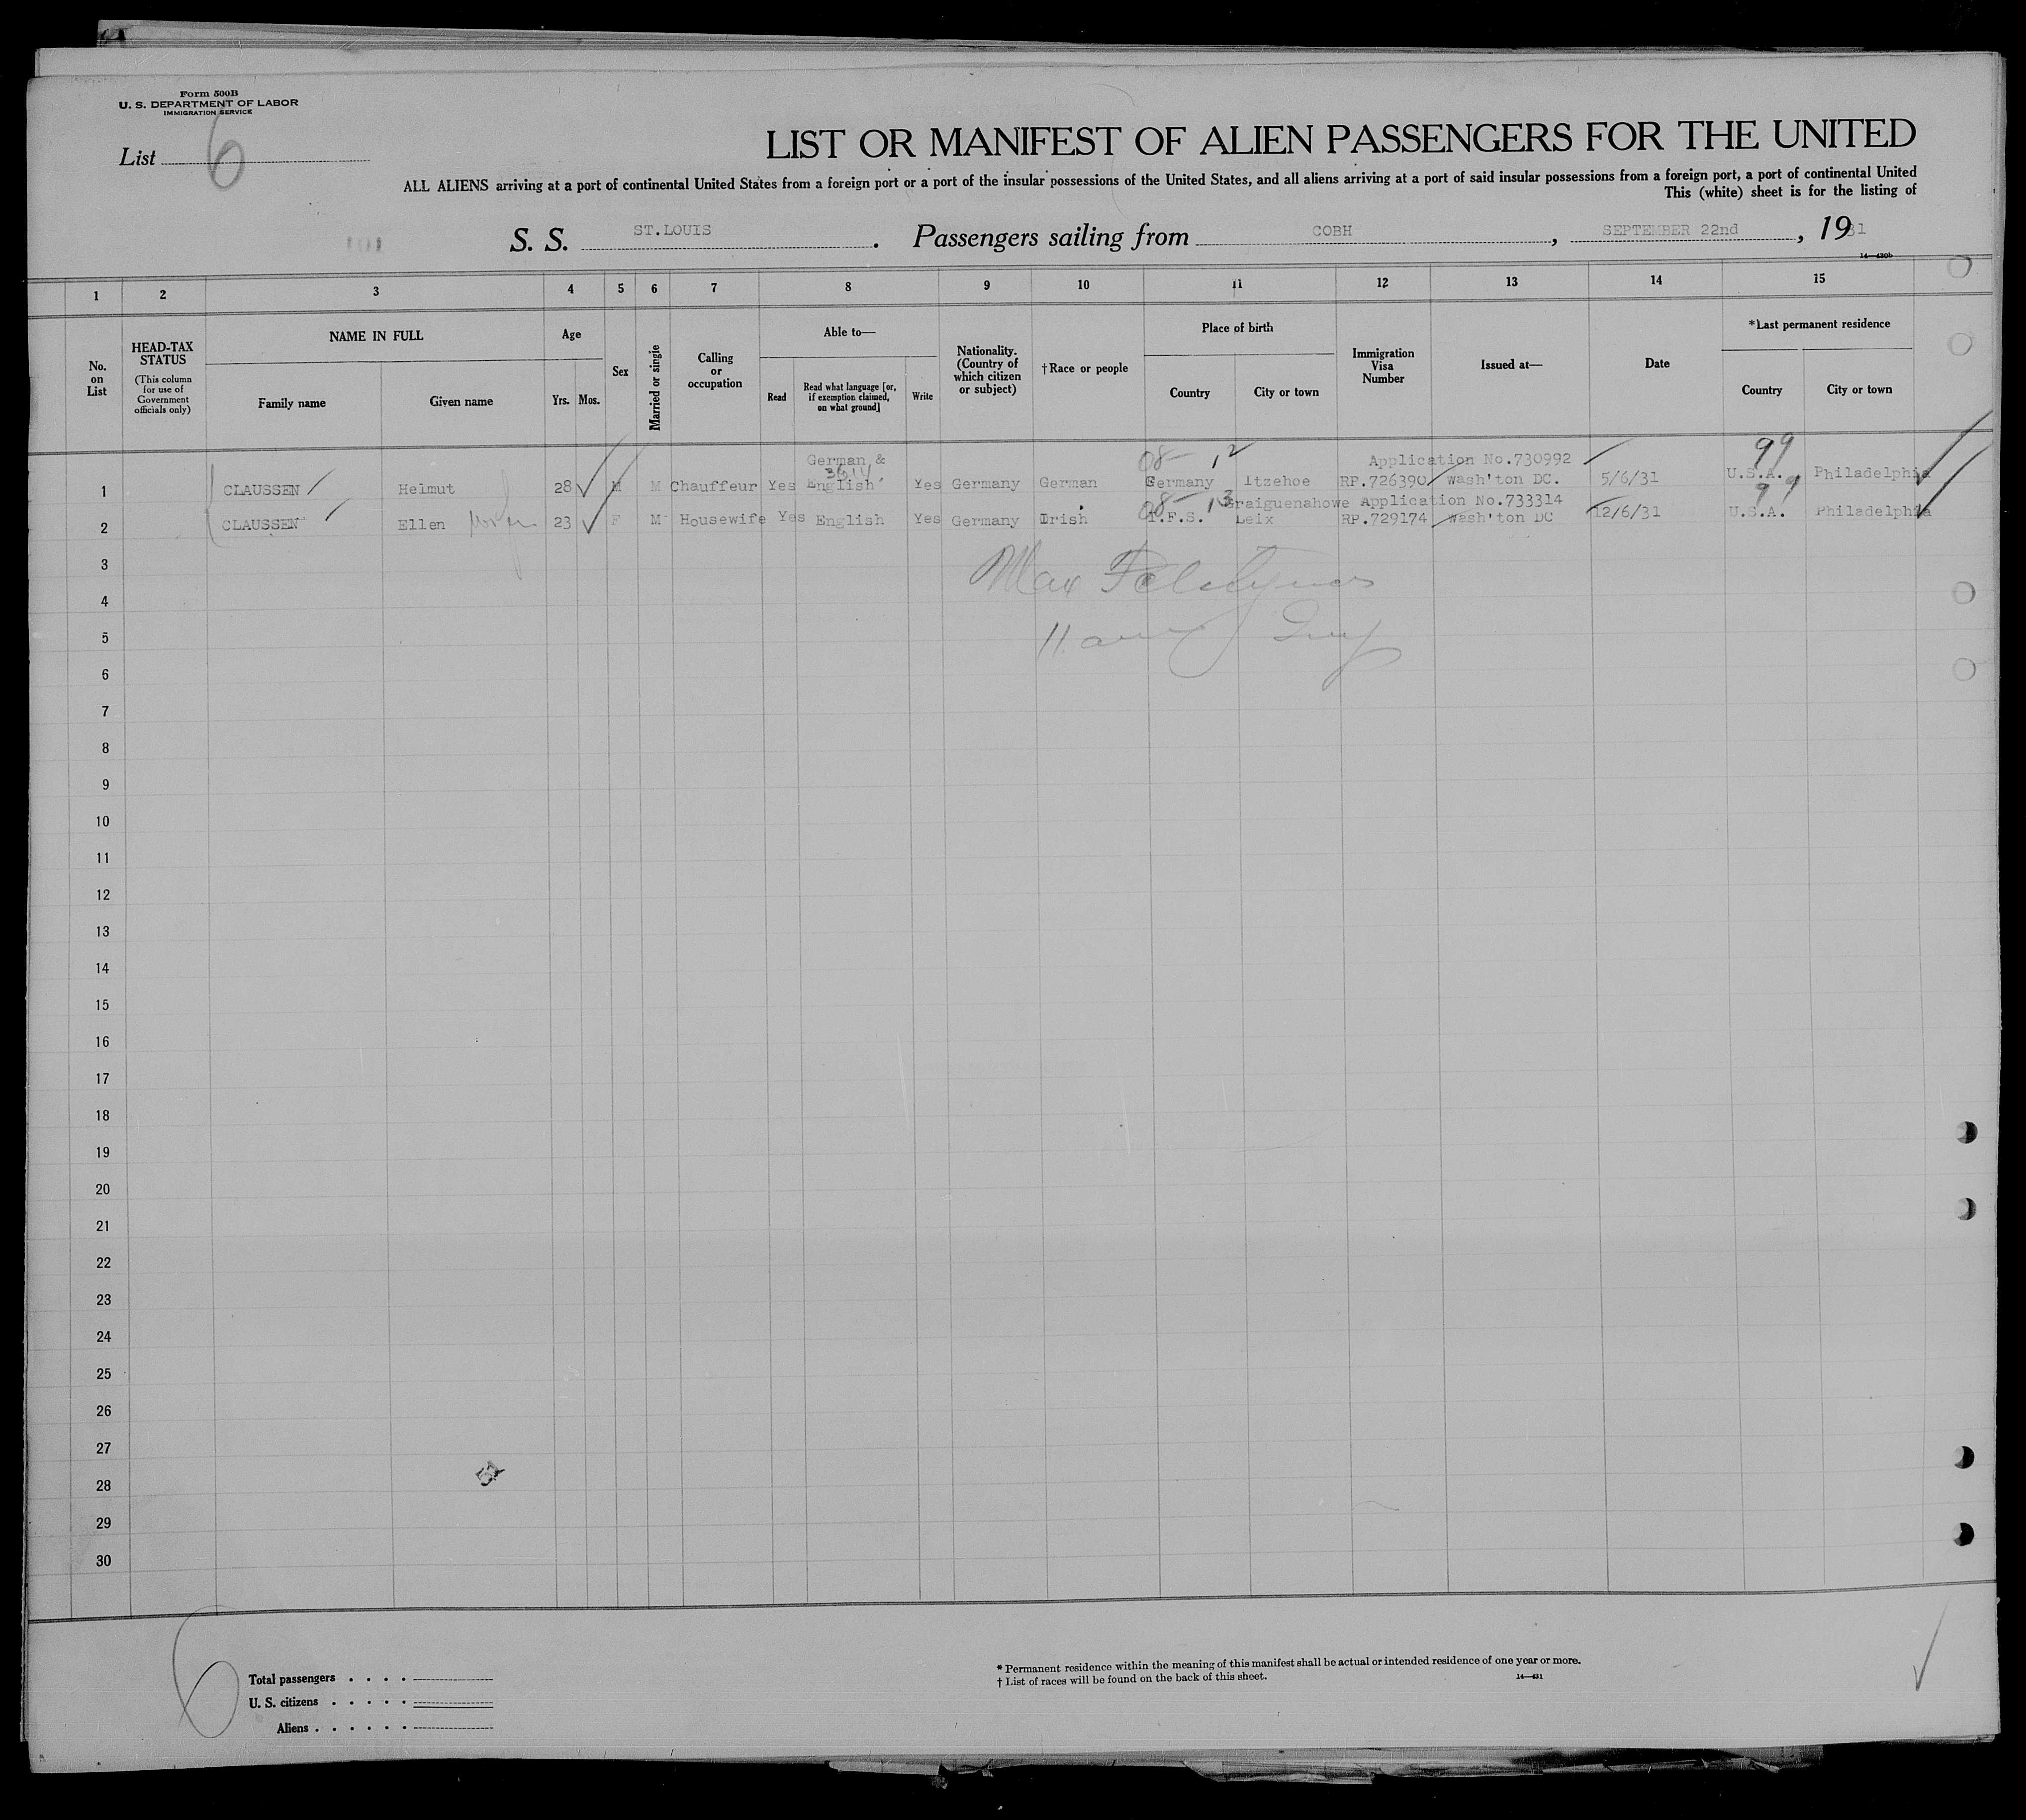 Form 500B
U. S. DEPARTMENT OF LABOR
IMMIGRATION SERVICE
List 6
LIST OR MANIFEST OF ALIEN PASSENGERS FOR THE UNITED
ALL ALIENS arriving at a port of continental United States from a foreign port or a port of the insular possessions of the United States, and all aliens arriving at a port of said insular possessions from a foreign port, a port of continental United
This (white) sheet is for the listing of
101
S. S. ST.LOUIS . Passengers sailing from COBH , SEPTEMBER 22nd , 1931
14—430b
1 2 3 4 5 6 7 8 9 10 11 12 13 14 15
No. on List
HEAD-TAX STATUS (This column for use of Government officials only)
NAME IN FULL
Family name Given name
Age
Yrs. Mos.
Sex
Married or single
Calling or occupation
Able to—
Read
Read what language [or, if exemption claimed, on what ground]
Write
Nationality. (Country of which citizen or subject)
†Race or people
Place of birth
Country City or town
Immigration Visa Number
Issued at—
Date
*Last permanent residence
Country City or town
German & 08- 12 Application No.730992 99
1 CLAUSSEN Helmut 28 M M Chauffeur Yes English Yes Germany German Germany Itzehoe RP.726390 Wash'ton DC. 5/6/31 U.S.A. Philadelphia
08- 13 Graiguenahowe Application No.733314 99
2 CLAUSSEN Ellen 23 F M Housewife Yes English Yes Germany Irish I.F.S. Leix RP.729174 Wash'ton DC 12/6/31 U.S.A. Philadelphia
3
Max
4
5
6
7
8
9
10
11
12
13
14
15
16
17
18
19
20
21
22
23
24
25
26
27
28
29
30
6
Total passengers . . . .
U. S. citizens . . . . .
Aliens . . . . . .
* Permanent residence within the meaning of this manifest shall be actual or intended residence of one year or more.
† List of races will be found on the back of this sheet.
14—431